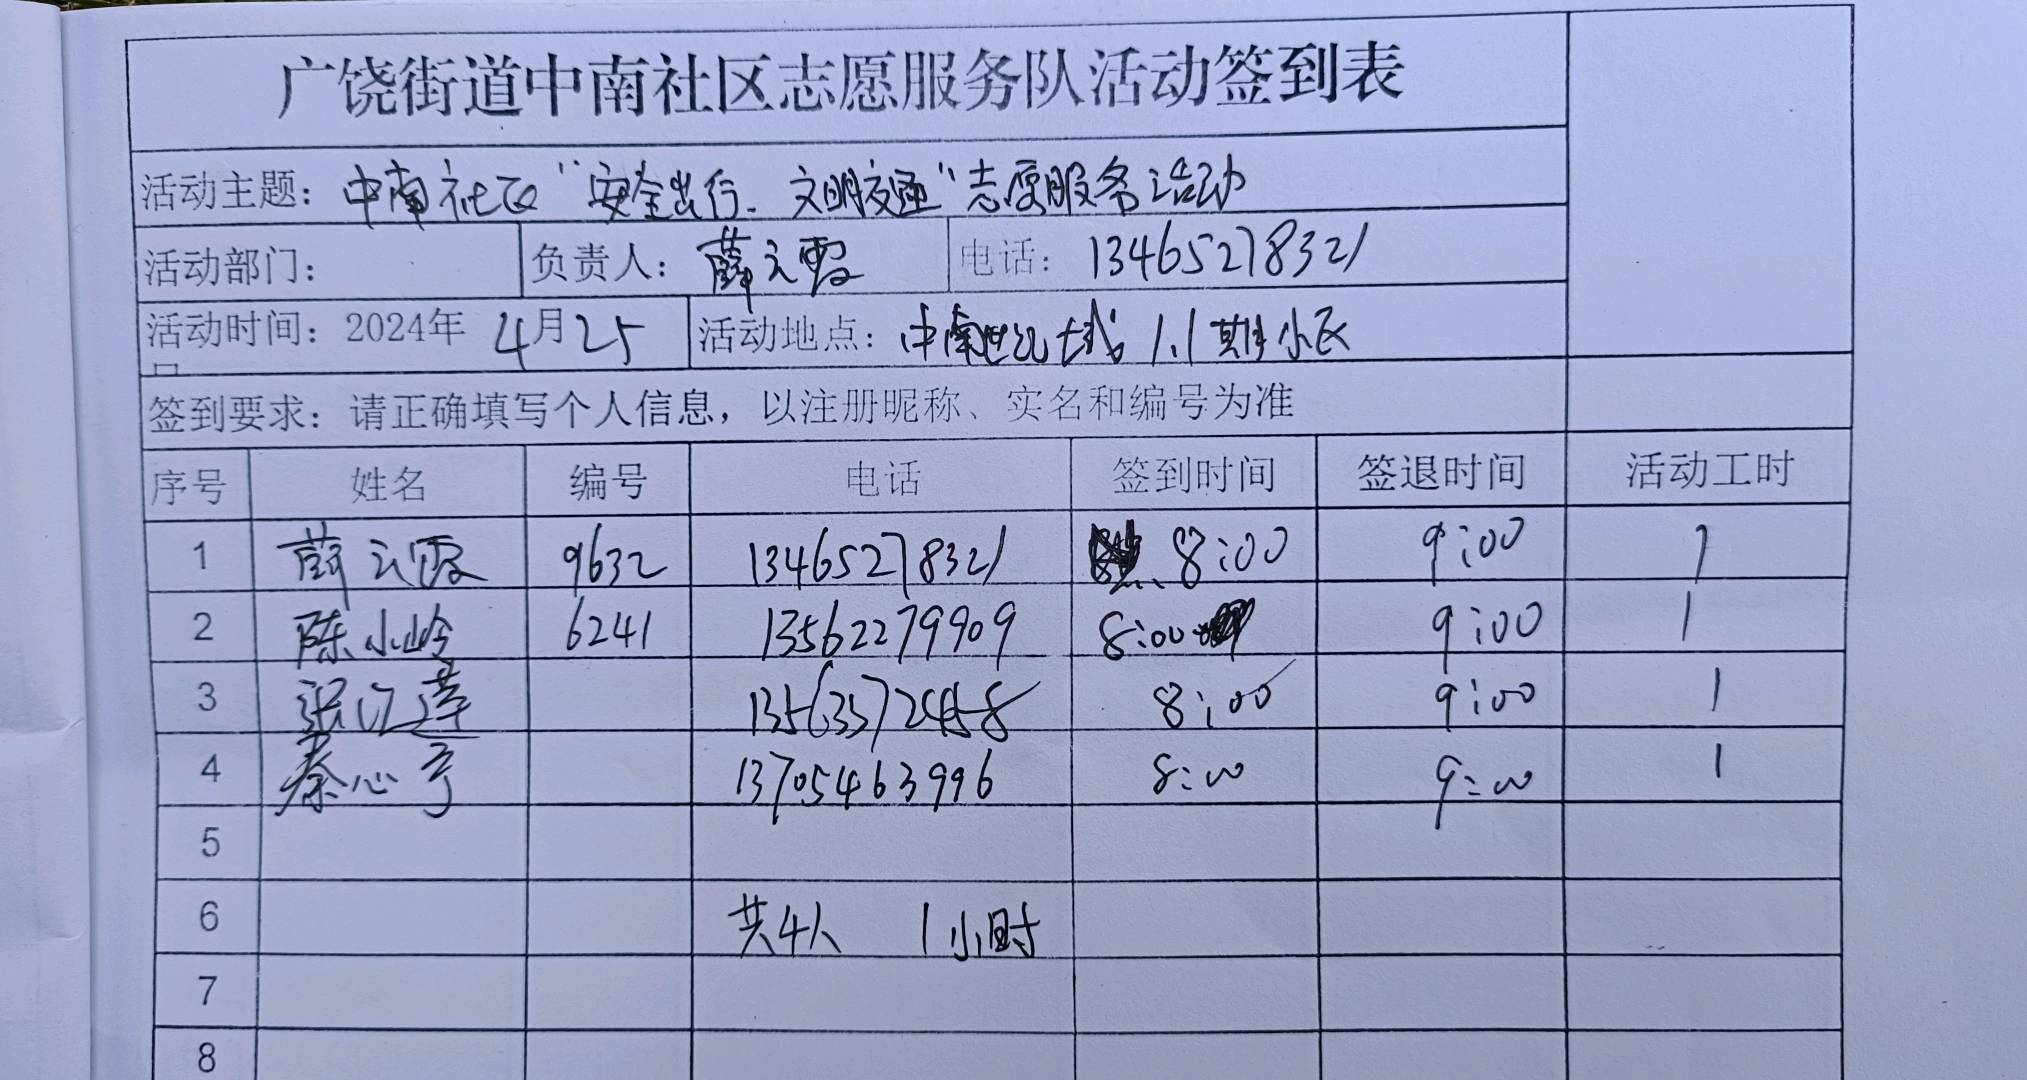 广饶街道中南社区志愿服务队活动签到表
活动主题：中南社区“安全出行、文明交通”志愿服务活动
活动部门： 负责人：薛之霞 电话：13465278321
活动时间：2024年 4月25 活动地点：中南世纪城1.1期小区
签到要求：请正确填写个人信息，以注册昵称、实名和编号为准
序号 姓名 编号 电话 签到时间 签退时间 活动工时
1 薛之霞 9632 13465278321 8:00 9:00 1
2 陈小岭 6241 13562279909 8:00 9:00 1
3 8:00 9:00 1
4 秦心亭 13705463996 8:00 9:00 1
5
6 共4人 1小时
7
8